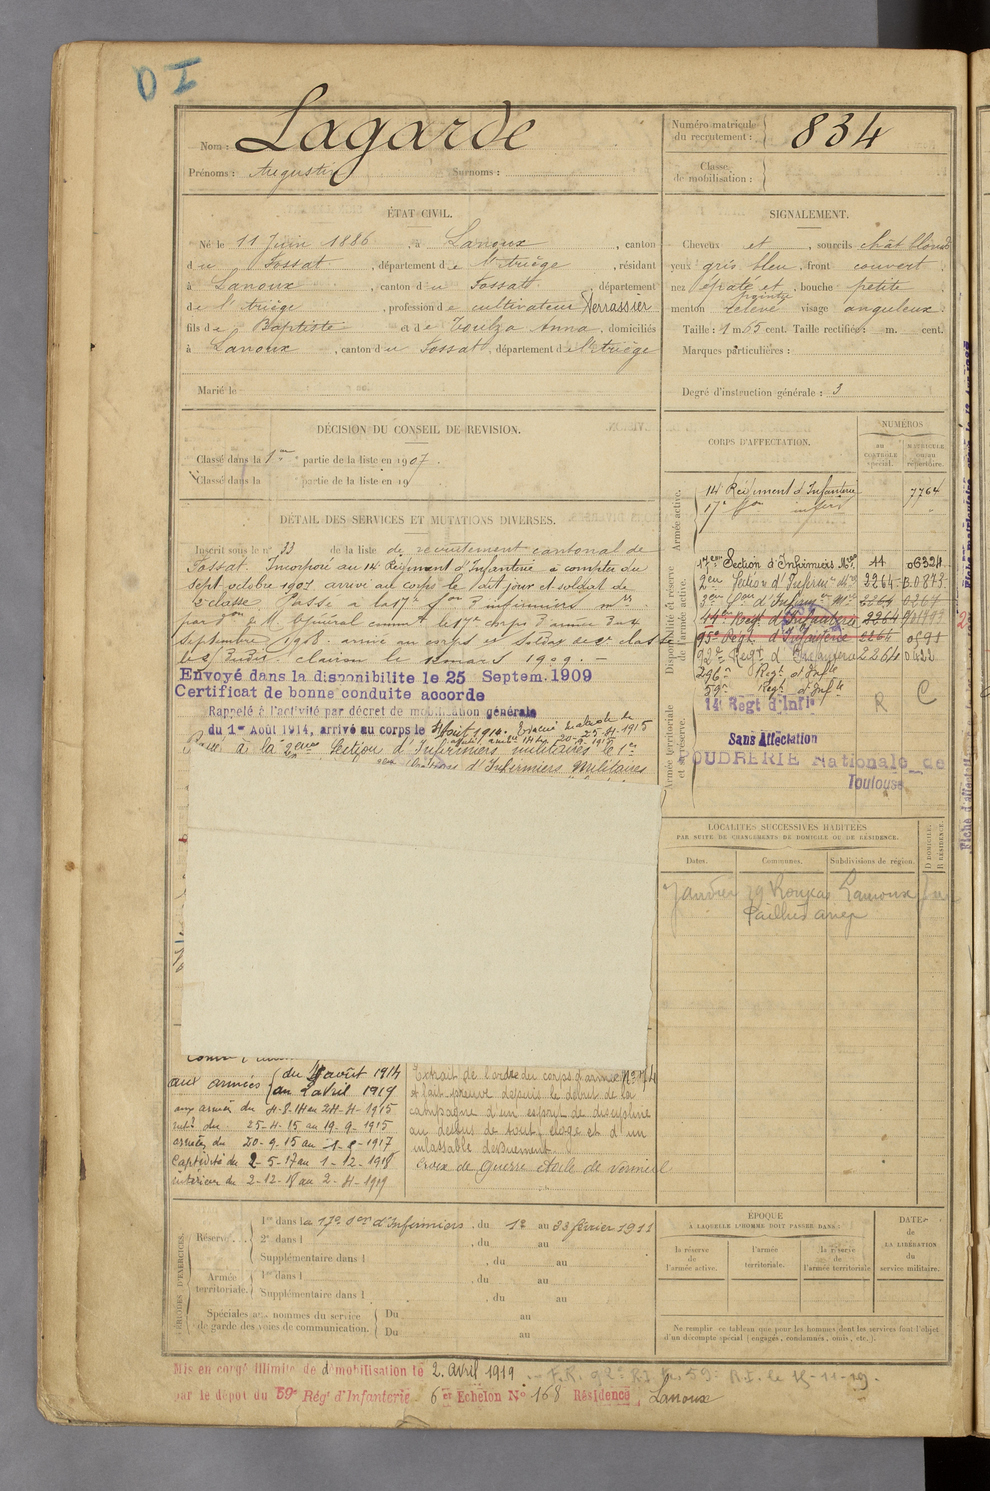 DI
Nom : Lagarde
Prénoms : Auguste Surnoms :
Numéro matricule du recrutement : 834
Classe de mobilisation :
ÉTAT CIVIL.
Né le 11 Juin 1886 , à Lanoux , canton
du Fossat , département de l'Ariège , résidant
à Lanoux , canton du Fossat , département
de l'Ariège , profession de cultivateur Terrassier
fils de Baptiste et de Toulza Anna , domiciliés
à Lanoux , canton du Fossat , département de l'Ariège
Marié le
SIGNALEMENT.
Cheveux et , sourcils chât blonds
yeux gris bleu , front couvert
nez épaté et pointe relevé , bouche petite
menton visage anguleux
Taille : 1 m. 65 cent. Taille rectifiée : m. cent.
Marques particulières :
Degré d'instruction générale : 3
DÉCISION DU CONSEIL DE REVISION.
Classé dans la 1re partie de la liste en 1907.
Classé dans la partie de la liste en 19
CORPS D'AFFECTATION.
NUMÉROS
AU CONTRÔLE spécial.
MATRICULE ou au répertoire.
Armée active.
14 Régiment d'Infanterie 7764
17e Son infirs
Disponibilité et réserve de l'armée active.
17eme Section d'Infirmiers Mres 11 06324
2em Section d'Infirm Mres 2264 B.0873
3em Son d'Infirm Mres 2264 0264
14em Regt d'Infanterie 2264
95e Regt d'Infanterie 2264 0591
92e Regt d'Infanterie 2264 0622
296e Regt d'Infie
59e Regt d'Infie
14e Regt d'Infie R C
Armée territoriale et sa réserve.
Sans Affectation
POUDRERIE Nationale de
Toulouse
DÉTAIL DES SERVICES ET MUTATIONS DIVERSES.
Inscrit sous le n° 33 de la liste de recrutement cantonal de
Fossat. Incorporé au 14 Régiment d'Infanterie à compter du
sept octobre 1907 arrivé au corps le dit jour et soldat de
2e classe. Passé à la 17e Son d'infirmiers mres
par Son de M. Général commt le 17e corps d'armée du 4
septembre 1908. arrivé au corps et soldat de 2e classe
le s/ dudit. clairon le 1er mars 1909. —
Envoyé dans la disponibilite le 25 Septem. 1909
Certificat de bonne conduite accorde
Rappelé à l'activité par décret de mobilisation générale
du 1er Août 1914, arrivé au corps le 4 Août 1914. Evacué malade le 25-4-1915
Passé à la 2eme Section d'Infirmiers militaires le 1er
d'Infirmiers Militaires
LOCALITÉS SUCCESSIVES HABITÉES
PAR SUITE DE CHANGEMENTS DE DOMICILE OU DE RÉSIDENCE.
Dates. Communes. Subdivisions de région. D DOMICILE. R RÉSIDENCE.
Janvier 29 Lanoux
Pailhès
aux armées { du 4 août 1914
au 2 avril 1919
aux armées du 4-8-14 au 24-4-1915
intr du 25-4-15 au 19-9-1915
armées du 20-9-15 au 1-5-1917
Captivité du 2-5-17 au 1-12-1918
intérieur du 2-12-18 au 2-4-1919
Extrait de l'ordre du corps d'armée
a fait preuve depuis le début de la
campagne d'un esprit de discipline
au dessus de tout éloge et d'un
inlassable dévouement.
Croix de guerre étoile de vermeil
PÉRIODES D'EXERCICES.
Réserve.... 1re dans la 17e Son d'Infirmiers , du 1er au 23 février 1911
2e dans l , du au
Supplémentaire dans l , du au
Armée territoriale. 1re dans l , du au
Supplémentaire dans l , du au
Spéciales aux hommes du service de garde des voies de communication. Du au
Du au
ÉPOQUE
À LAQUELLE L'HOMME DOIT PASSER DANS :
la réserve de l'armée active.
l'armée territoriale.
la réserve de l'armée territoriale.
DATE DE LA LIBÉRATION du service militaire.
Ne remplir ce tableau que pour les hommes dont les services font l'objet
d'un décompte spécial (engagés, condamnés, omis, etc.).
Mis en congé illimité de démobilisation le 2. avril 1919 F.R. 92e R.I. p. 59e R.I. le 15-11-19.
par le dépôt du 59e Régt d'Infanterie 6e Échelon N° 168 Résidence Lanoux